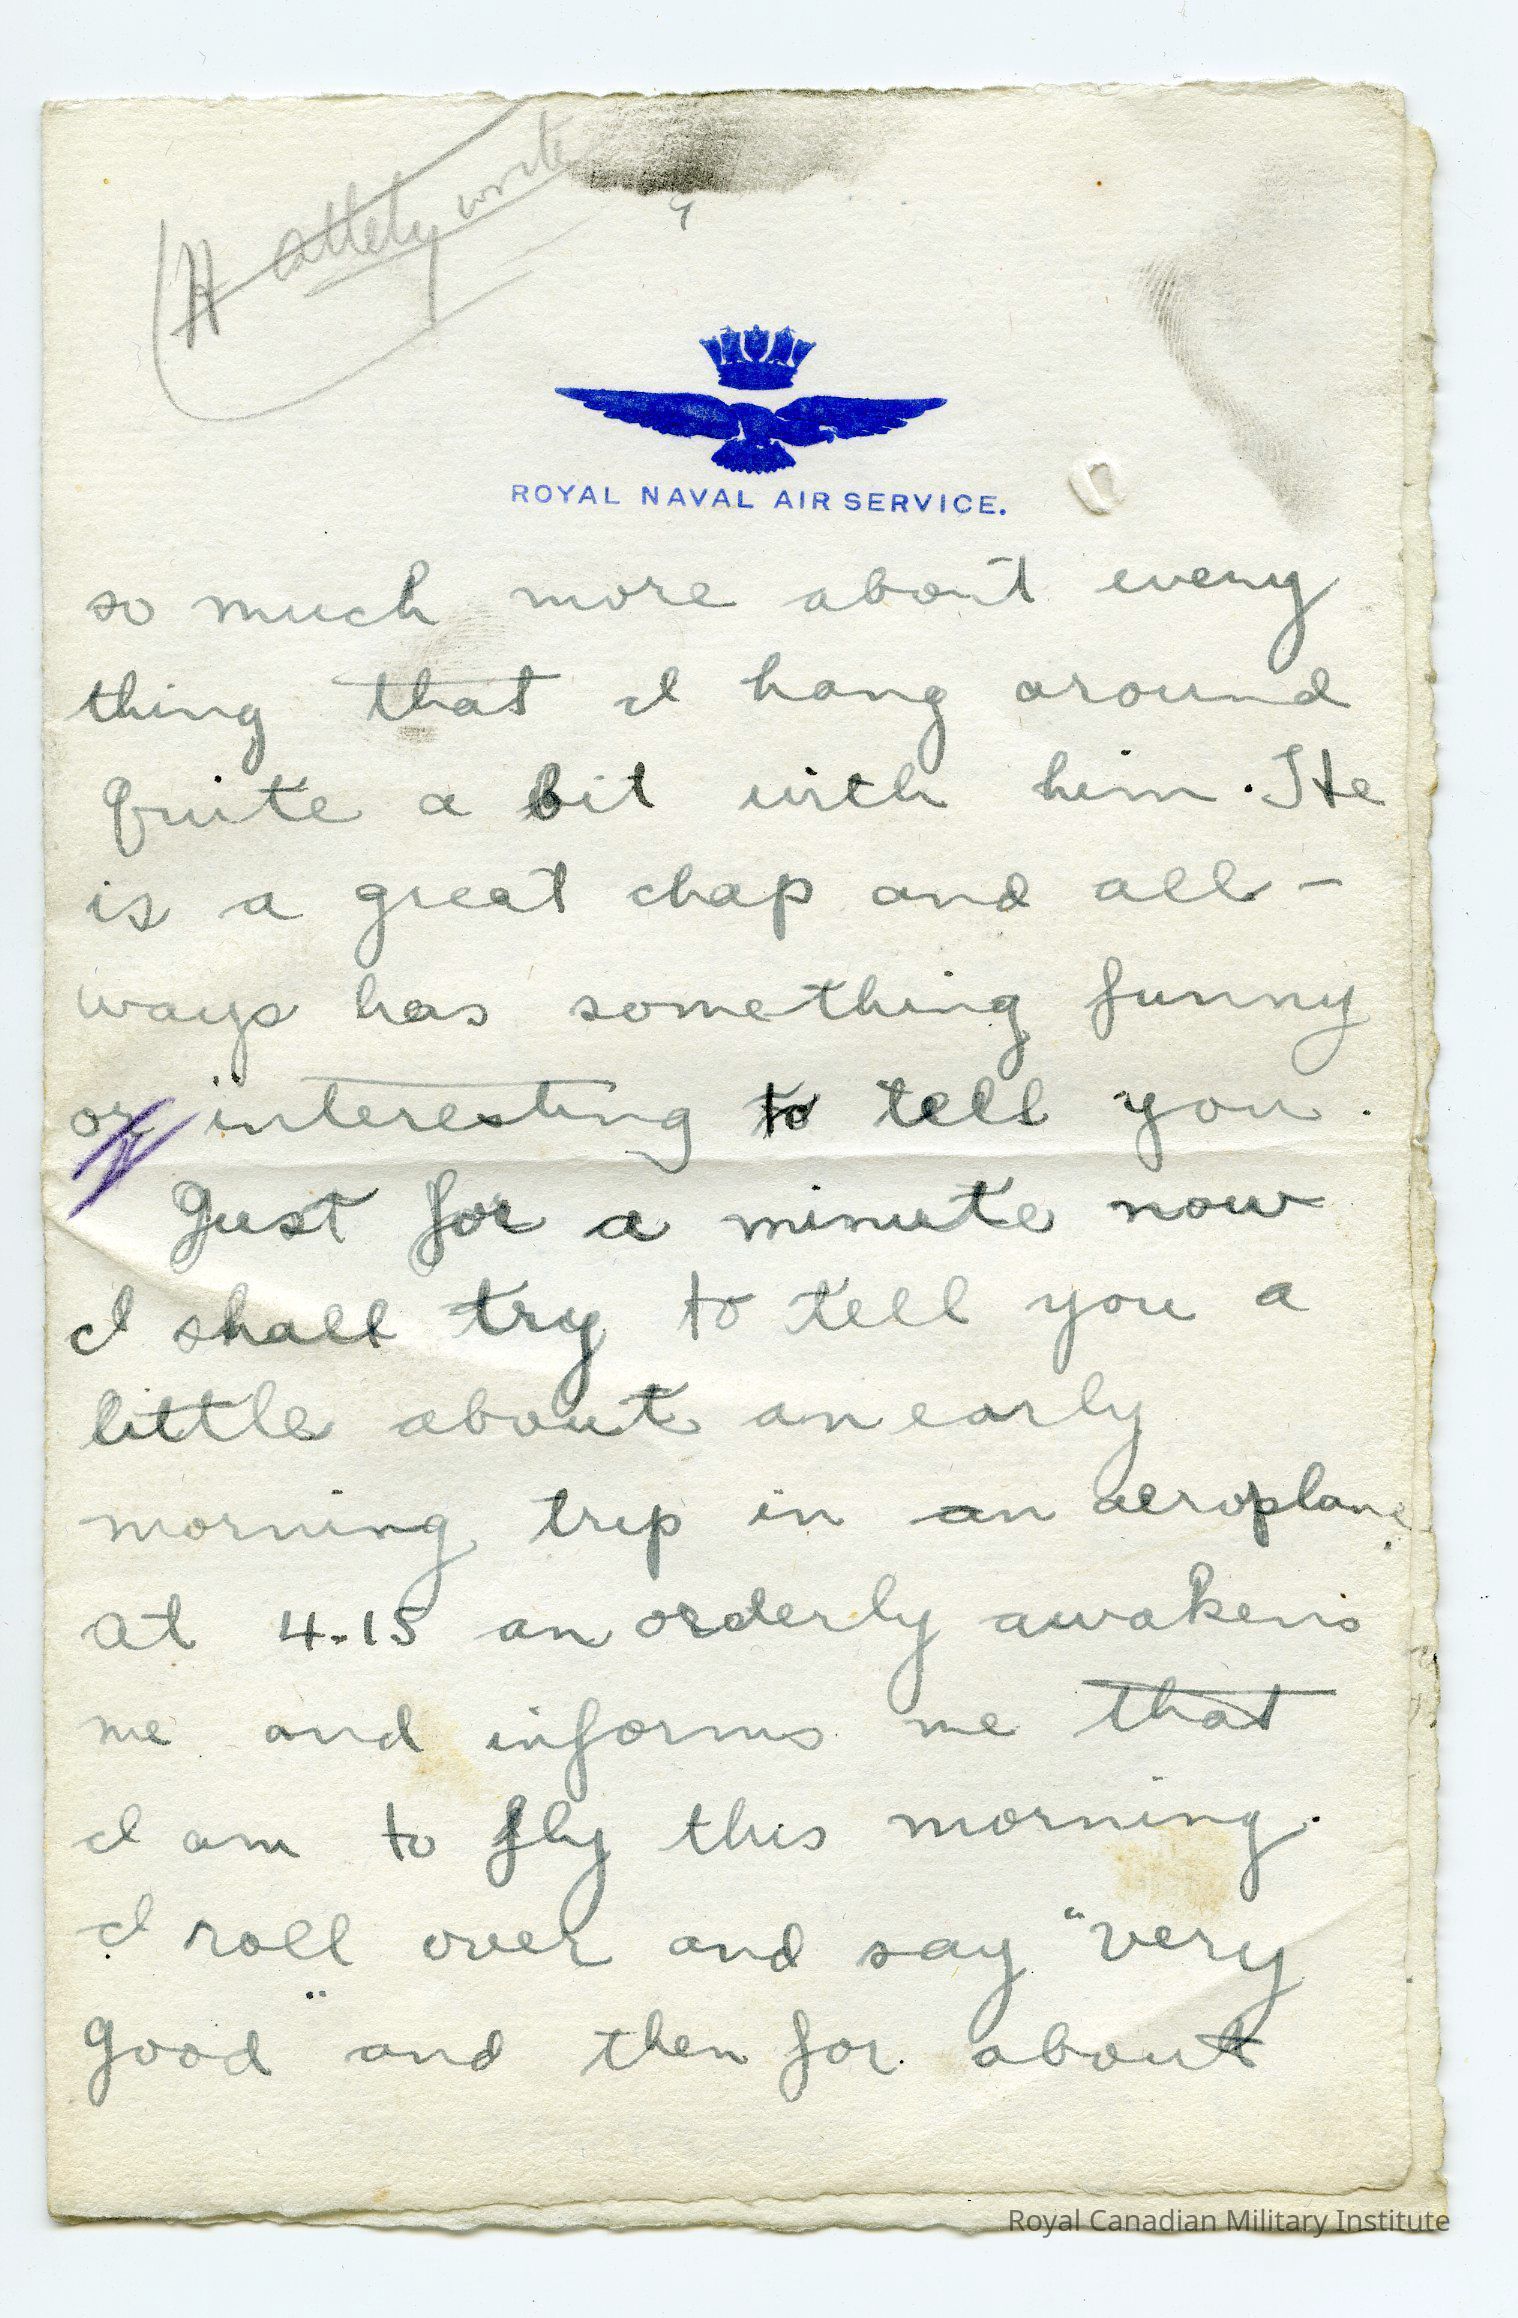 write
9
ROYAL NAVAL AIR SERVICE.
so much more about every
thing that I hang around
quite a bit with him. He
is a great chap and all-
ways has something funny
or interesting to tell you.
Just for a minute now
I shall try to tell you a
little about an early
morning trip in an aeroplane.
at 4.15 an orderly awakens
me and informs me that
I am to fly this morning.
I roll over and say "very
good" and then for about
Royal Canadian Military Institute